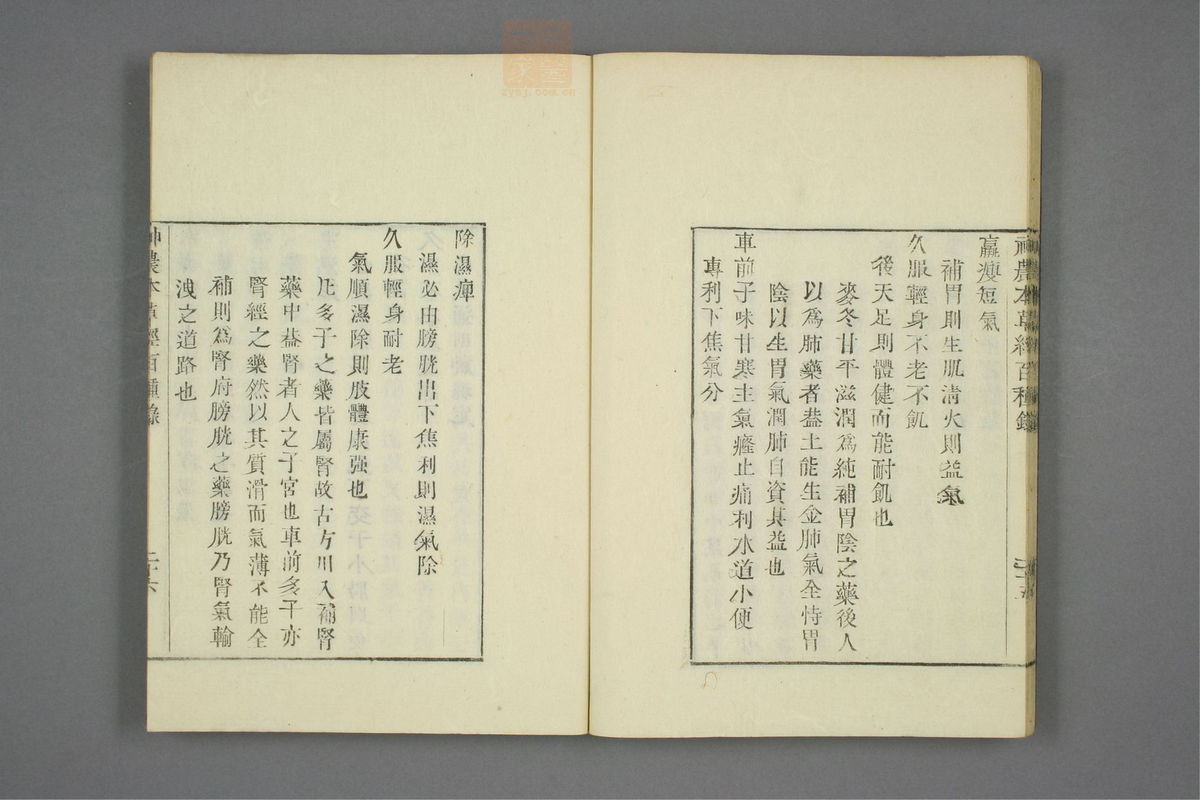 神農本草經百種錄
羸瘦短氣
補胃則生肌清火則益氣
久服輕身不老不飢
後天足則體健而能耐飢也
麥冬甘平滋潤爲純補胃陰之藥後人
以爲肺藥者葢土能生金肺氣全恃胃
陰以生胃氣潤肺自資其益也
車前子味甘寒主氣癃止痛利水道小便
專利下焦氣分
除濕痺
濕必由膀胱出下焦利則濕氣除
久服輕身耐老
氣順濕除則肢體康强也
凡多子之藥皆屬腎故古方用入補腎
藥中葢腎者人之子宮也車前多子亦
腎經之藥然以其質滑而氣薄不能全
補則爲腎府膀胱之藥膀胱乃腎氣輸
洩之道路也
神農本草經百種錄
二十六
zysj.com.cn